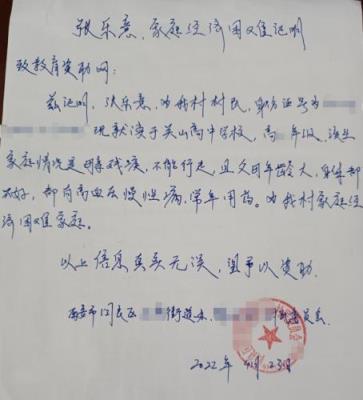 张乐意，家庭经济困难证明
致教育资助网：
兹证明，张乐意，为我村村民，身份证号为
现就读于英山高中学校，高 年级，该生
家庭情况是母亲残疾，不能行走，且父母年龄大，身体都
不好，都有高血压慢性病，常年用药。为我村家庭经
济困难家庭。
以上信息真实无误，望予以资助。
街道办 委员会
2022年 月23日